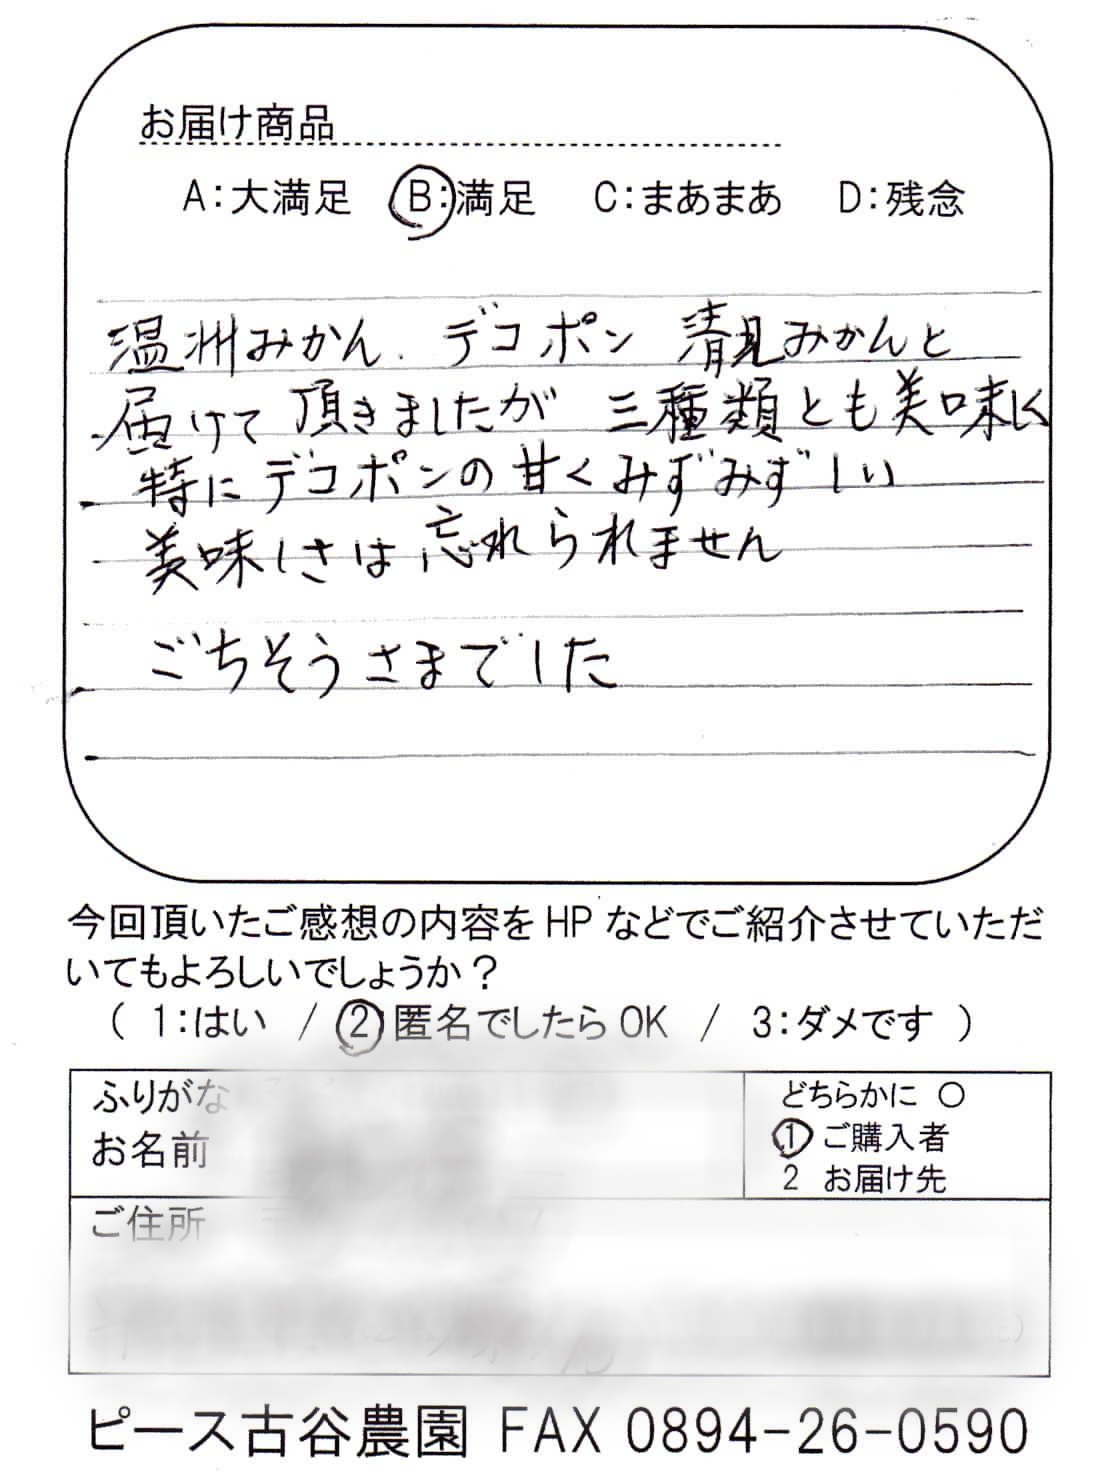 お届け商品
A:大満足 B:満足 C:まあまあ D:残念
温州みかん、デコポン 清見みかんと
届けて頂きましたが 三種類とも美味しく
特にデコポンの甘くみずみずしい
美味しさは忘れられません
ごちそうさまでした
今回頂いたご感想の内容をHPなどでご紹介させていただ
いてもよろしいでしょうか?
( 1:はい / 2 匿名でしたらOK / 3:ダメです )
ふりがな
お名前
どちらかに ○
1 ご購入者
2 お届け先
ご住所
ピース古谷農園 FAX 0894-26-0590